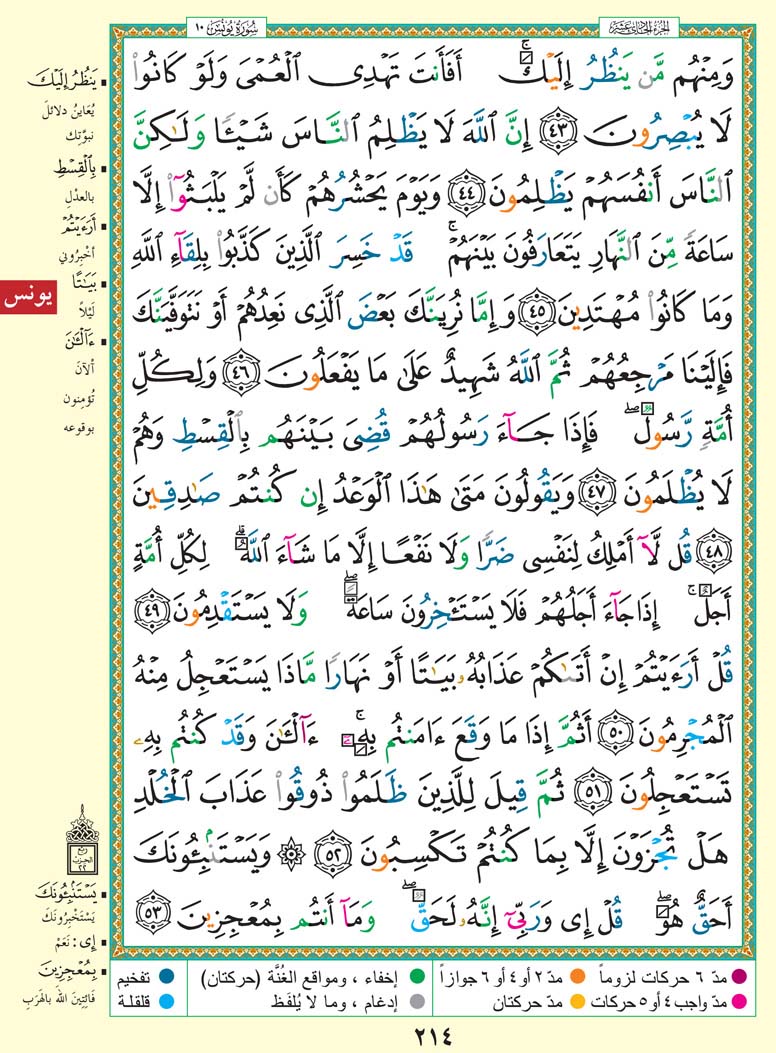 الجزء الحادي عشر
سورة يونس ١٠
وَمِنْهُم مَّن يَنظُرُ إِلَيْكَ ۚ أَفَأَنتَ تَهْدِى ٱلْعُمْىَ وَلَوْ كَانُوا۟
لَا يُبْصِرُونَ ٤٣ إِنَّ ٱللَّهَ لَا يَظْلِمُ ٱلنَّاسَ شَيْـًٔا وَلَـٰكِنَّ
ٱلنَّاسَ أَنفُسَهُمْ يَظْلِمُونَ ٤٤ وَيَوْمَ يَحْشُرُهُمْ كَأَن لَّمْ يَلْبَثُوٓا۟ إِلَّا
سَاعَةً مِّنَ ٱلنَّهَارِ يَتَعَارَفُونَ بَيْنَهُمْ ۚ قَدْ خَسِرَ ٱلَّذِينَ كَذَّبُوا۟ بِلِقَآءِ ٱللَّهِ
وَمَا كَانُوا۟ مُهْتَدِينَ ٤٥ وَإِمَّا نُرِيَنَّكَ بَعْضَ ٱلَّذِى نَعِدُهُمْ أَوْ نَتَوَفَّيَنَّكَ
فَإِلَيْنَا مَرْجِعُهُمْ ثُمَّ ٱللَّهُ شَهِيدٌ عَلَىٰ مَا يَفْعَلُونَ ٤٦ وَلِكُلِّ
أُمَّةٍ رَّسُولٌ ۖ فَإِذَا جَآءَ رَسُولُهُمْ قُضِىَ بَيْنَهُم بِٱلْقِسْطِ وَهُمْ
لَا يُظْلَمُونَ ٤٧ وَيَقُولُونَ مَتَىٰ هَـٰذَا ٱلْوَعْدُ إِن كُنتُمْ صَـٰدِقِينَ
٤٨ قُل لَّآ أَمْلِكُ لِنَفْسِى ضَرًّا وَلَا نَفْعًا إِلَّا مَا شَآءَ ٱللَّهُ ۗ لِكُلِّ أُمَّةٍ
أَجَلٌ ۚ إِذَا جَآءَ أَجَلُهُمْ فَلَا يَسْتَـْٔخِرُونَ سَاعَةً ۖ وَلَا يَسْتَقْدِمُونَ ٤٩
قُلْ أَرَءَيْتُمْ إِنْ أَتَىٰكُمْ عَذَابُهُۥ بَيَـٰتًا أَوْ نَهَارًا مَّاذَا يَسْتَعْجِلُ مِنْهُ
ٱلْمُجْرِمُونَ ٥٠ أَثُمَّ إِذَا مَا وَقَعَ ءَامَنتُم بِهِۦٓ ۚ ءَآلْـَٔـٰنَ وَقَدْ كُنتُم بِهِۦ
تَسْتَعْجِلُونَ ٥١ ثُمَّ قِيلَ لِلَّذِينَ ظَلَمُوا۟ ذُوقُوا۟ عَذَابَ ٱلْخُلْدِ
هَلْ تُجْزَوْنَ إِلَّا بِمَا كُنتُمْ تَكْسِبُونَ ٥٢ ۞ وَيَسْتَنۢبِـُٔونَكَ
أَحَقٌّ هُوَ ۖ قُلْ إِى وَرَبِّىٓ إِنَّهُۥ لَحَقٌّ ۖ وَمَآ أَنتُم بِمُعْجِزِينَ ٥٣
يَنظُرُ إِلَيْكَ
يُعَاينُ دلائلَ
نبوّتِك
بِٱلْقِسْطِ
بالعدْل
أَرَءَيْتُمْ
أخبِرُوني
بَيَـٰتًا
لَيْلاً
ءَآلْـَٔـٰنَ
آلآنَ
تُؤمِنون
بوقوعه
يونس
ربع
الحزب
٢٢
يَسْتَنۢبِـُٔونَكَ
يَسْتَخْبِرُونَكَ
إِى : نَعَمْ
بِمُعْجِزِينَ
فَائِتِينَ الله بالهَرَبِ
مدّ ٦ حركات لزوماً مدّ ٢ أو ٤ أو ٦ جوازاً إخفاء ، ومواقع الغُنَّة (حركتان) تفخيم
مدّ واجب ٤ أو ٥ حركات مدّ حركتان إدغام ، وما لا يُلفَظ قلقلة
٢١٤